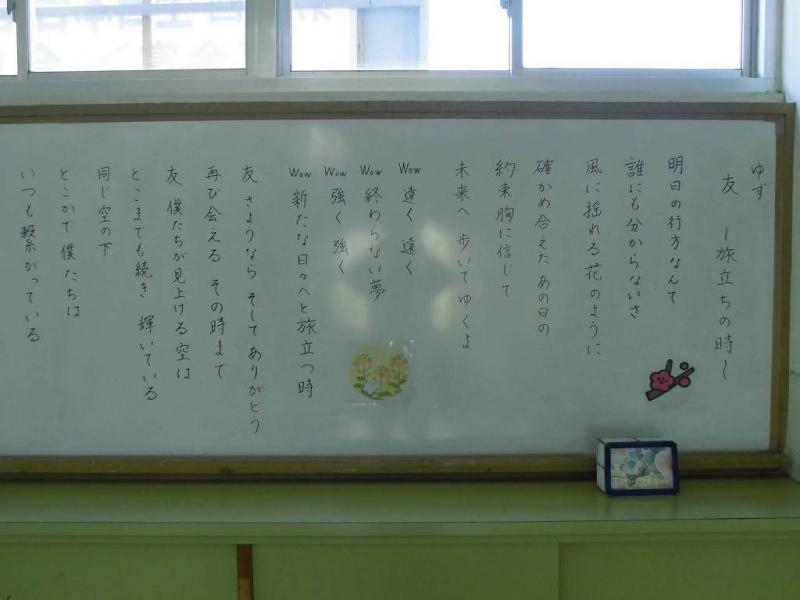 ゆず
友 〜旅立ちの時〜
明日の行方なんて
誰にも分からないさ
風に揺れる花のように
確かめ合えたあの日の
約束胸に信じて
未来へ 歩いてゆくよ
Wow 遠く 遠く
Wow 終わらない夢
Wow 強く 強く
Wow 新たな日々へと旅立つ時
友 さようなら そしてありがとう
再び会える その時まで
友 僕たちが見上げる空は
どこまでも続き 輝いている
同じ空の下
どこかで僕たちは
いつも繋がっている